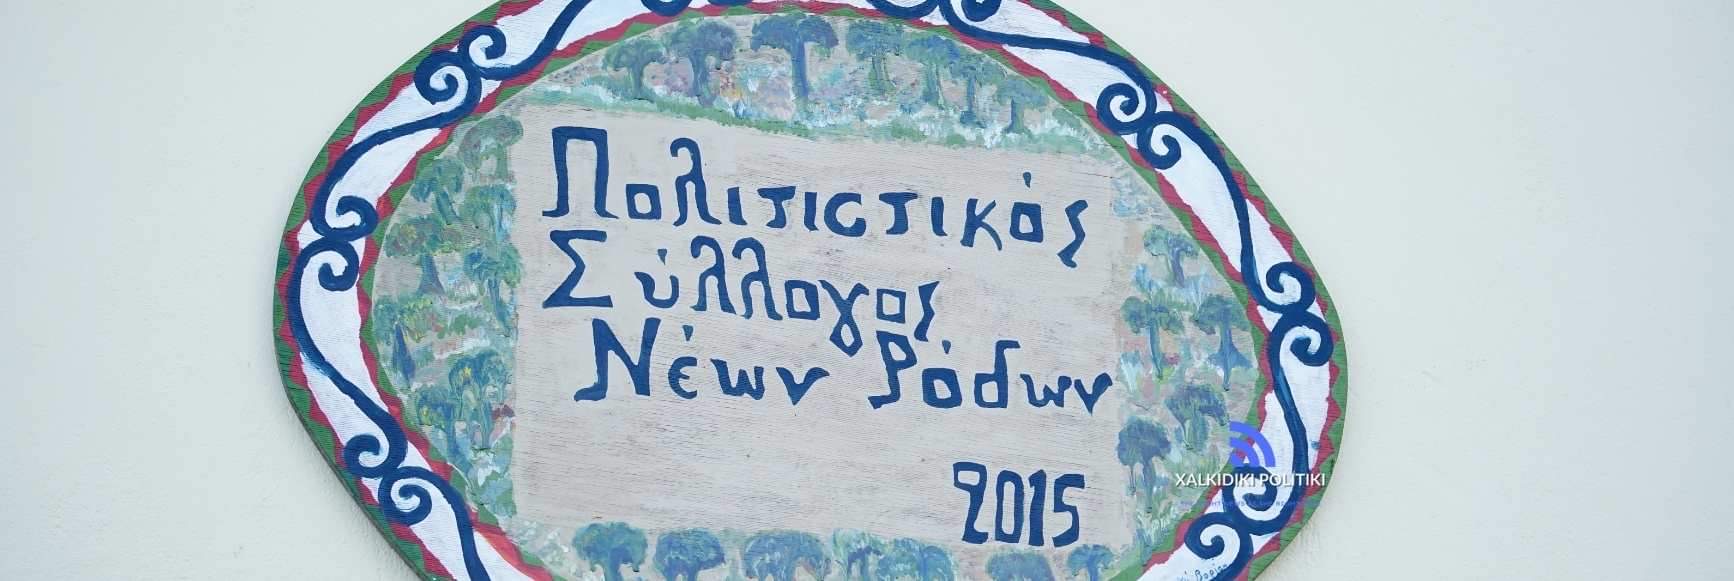 Πολιτιστικός
Σύλλογος
Νέων Ρόδων
2015
XALKIDIKI POLITIKI